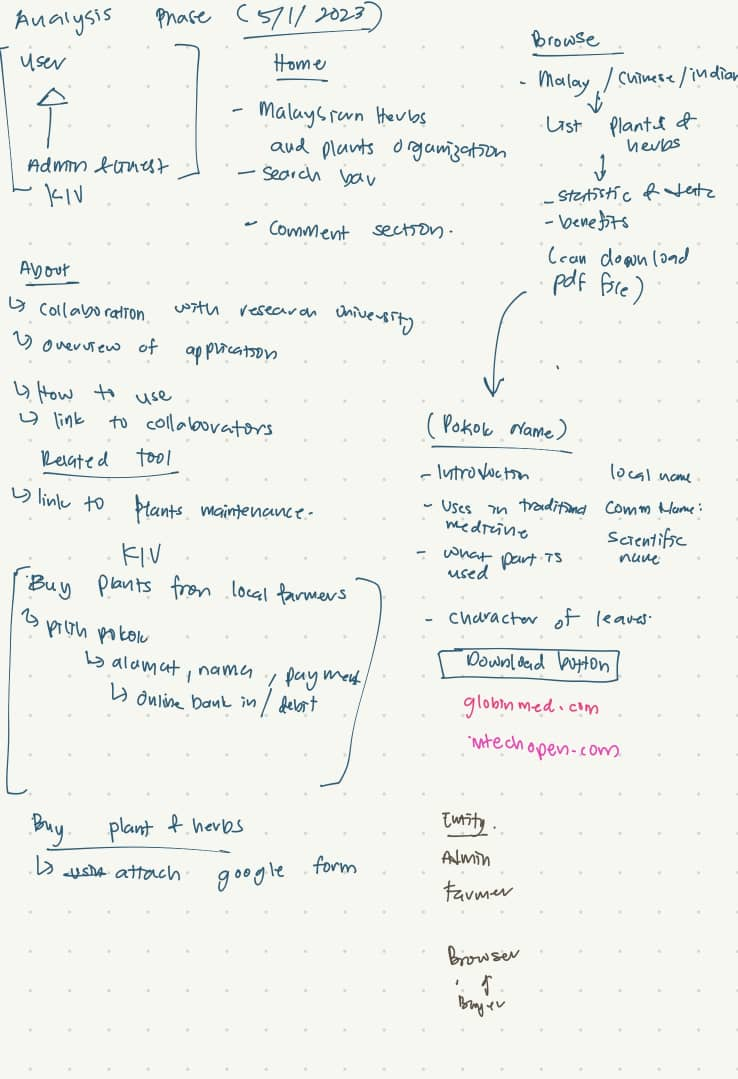 Analysis Phase (5/1/2023)
User
Admin & Guest
KIV
Home
- Malaysian Herbs
and plants organization
- Search bar
- Comment section.
Browse
- Malay / Chinese / indian
List Plants &
herbs
- statistic &
- benefits
(can download
pdf file)
About
↳ Collaboration with research university
↳ overview of application
↳ How to use
↳ link to collaborators
Related tool
↳ link to plants maintenance.
KIV
Buy plants from local farmers
↳ pilih pokok
↳ alamat, nama, payment
↳ online bank in / debit
Buy plant & herbs
↳ attach google form
(Pokok Name)
- Introduction
- Uses in traditional
medicine
- What part is
used
- character of leaves.
local name
Comm Name:
Scientific
name
Download button
globinmed.com
intechopen.com
Entity.
Admin
Farmer
Browser
Buyer